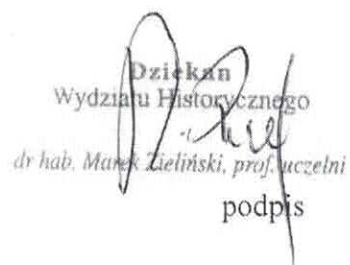 Dziekan
Wydziału Historycznego
dr hab. Marek Zieliński, prof. uczelni
podpis